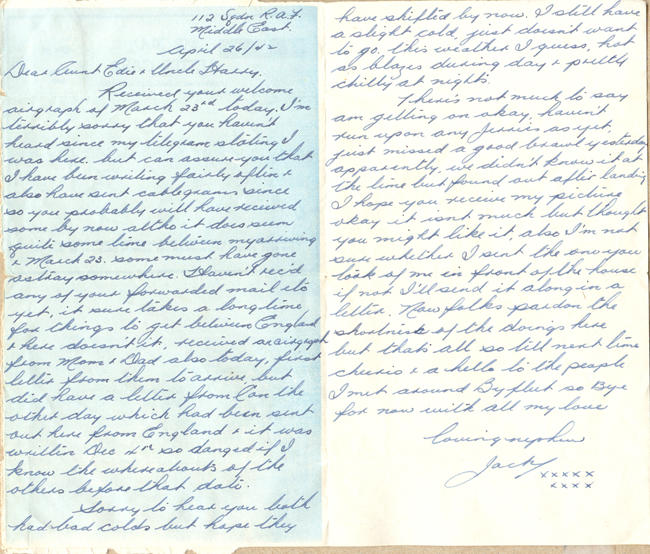 112 Sqdn R.A.F.
Middle East.
April 26/42
Dear Aunt Edie & Uncle Harry.
Received your welcome
airgraph of March 23rd today. I'm
terribly sorry that you haven't
heard since my telegram stating I
was here. but can assure you that
I have been writing fairly often &
also have sent cablegrams since
so you probably will have received
some by now altho it does seem
quite some time between my arriving
& March 23. some must have gone
astray somewhere. Haven't rec'd
any of your forwarded mail as
yet, it sure takes a long time
for things to get between England
& here doesn't it. received an airgraph
from Mom & Dad also today, first
letter from them to arrive, but
did have a letter from Can the
other day which had been sent
out here from England & it was
written Dec so danged if I
know the whereabouts of the
others before that date.
Sorry to hear you both
had bad colds but hope they
have shifted by now. I still have
a slight cold, just doesn't want
to go. this weather I guess, hot
as blazes during day & pretty
chilly at nights.
There's not much to say
am getting on okay, haven't
run upon any Jerries as yet.
just missed a good brawl yesterday
apparently, we didn't know it at
the time but found out after landing
I hope you receive my picture
okay it isnt much but thought
you might like it, also I'm not
sure whether I sent the one you
took of me in front of the house
if not I'll send it along in a
letter. Now folks pardon the
shortness of the doings here
but that's all so till next time
cheerio & a hello to the people
I met around Byfleet so Bye
for now with all my love
loving nephew
Jack
xxxxx
xxxx